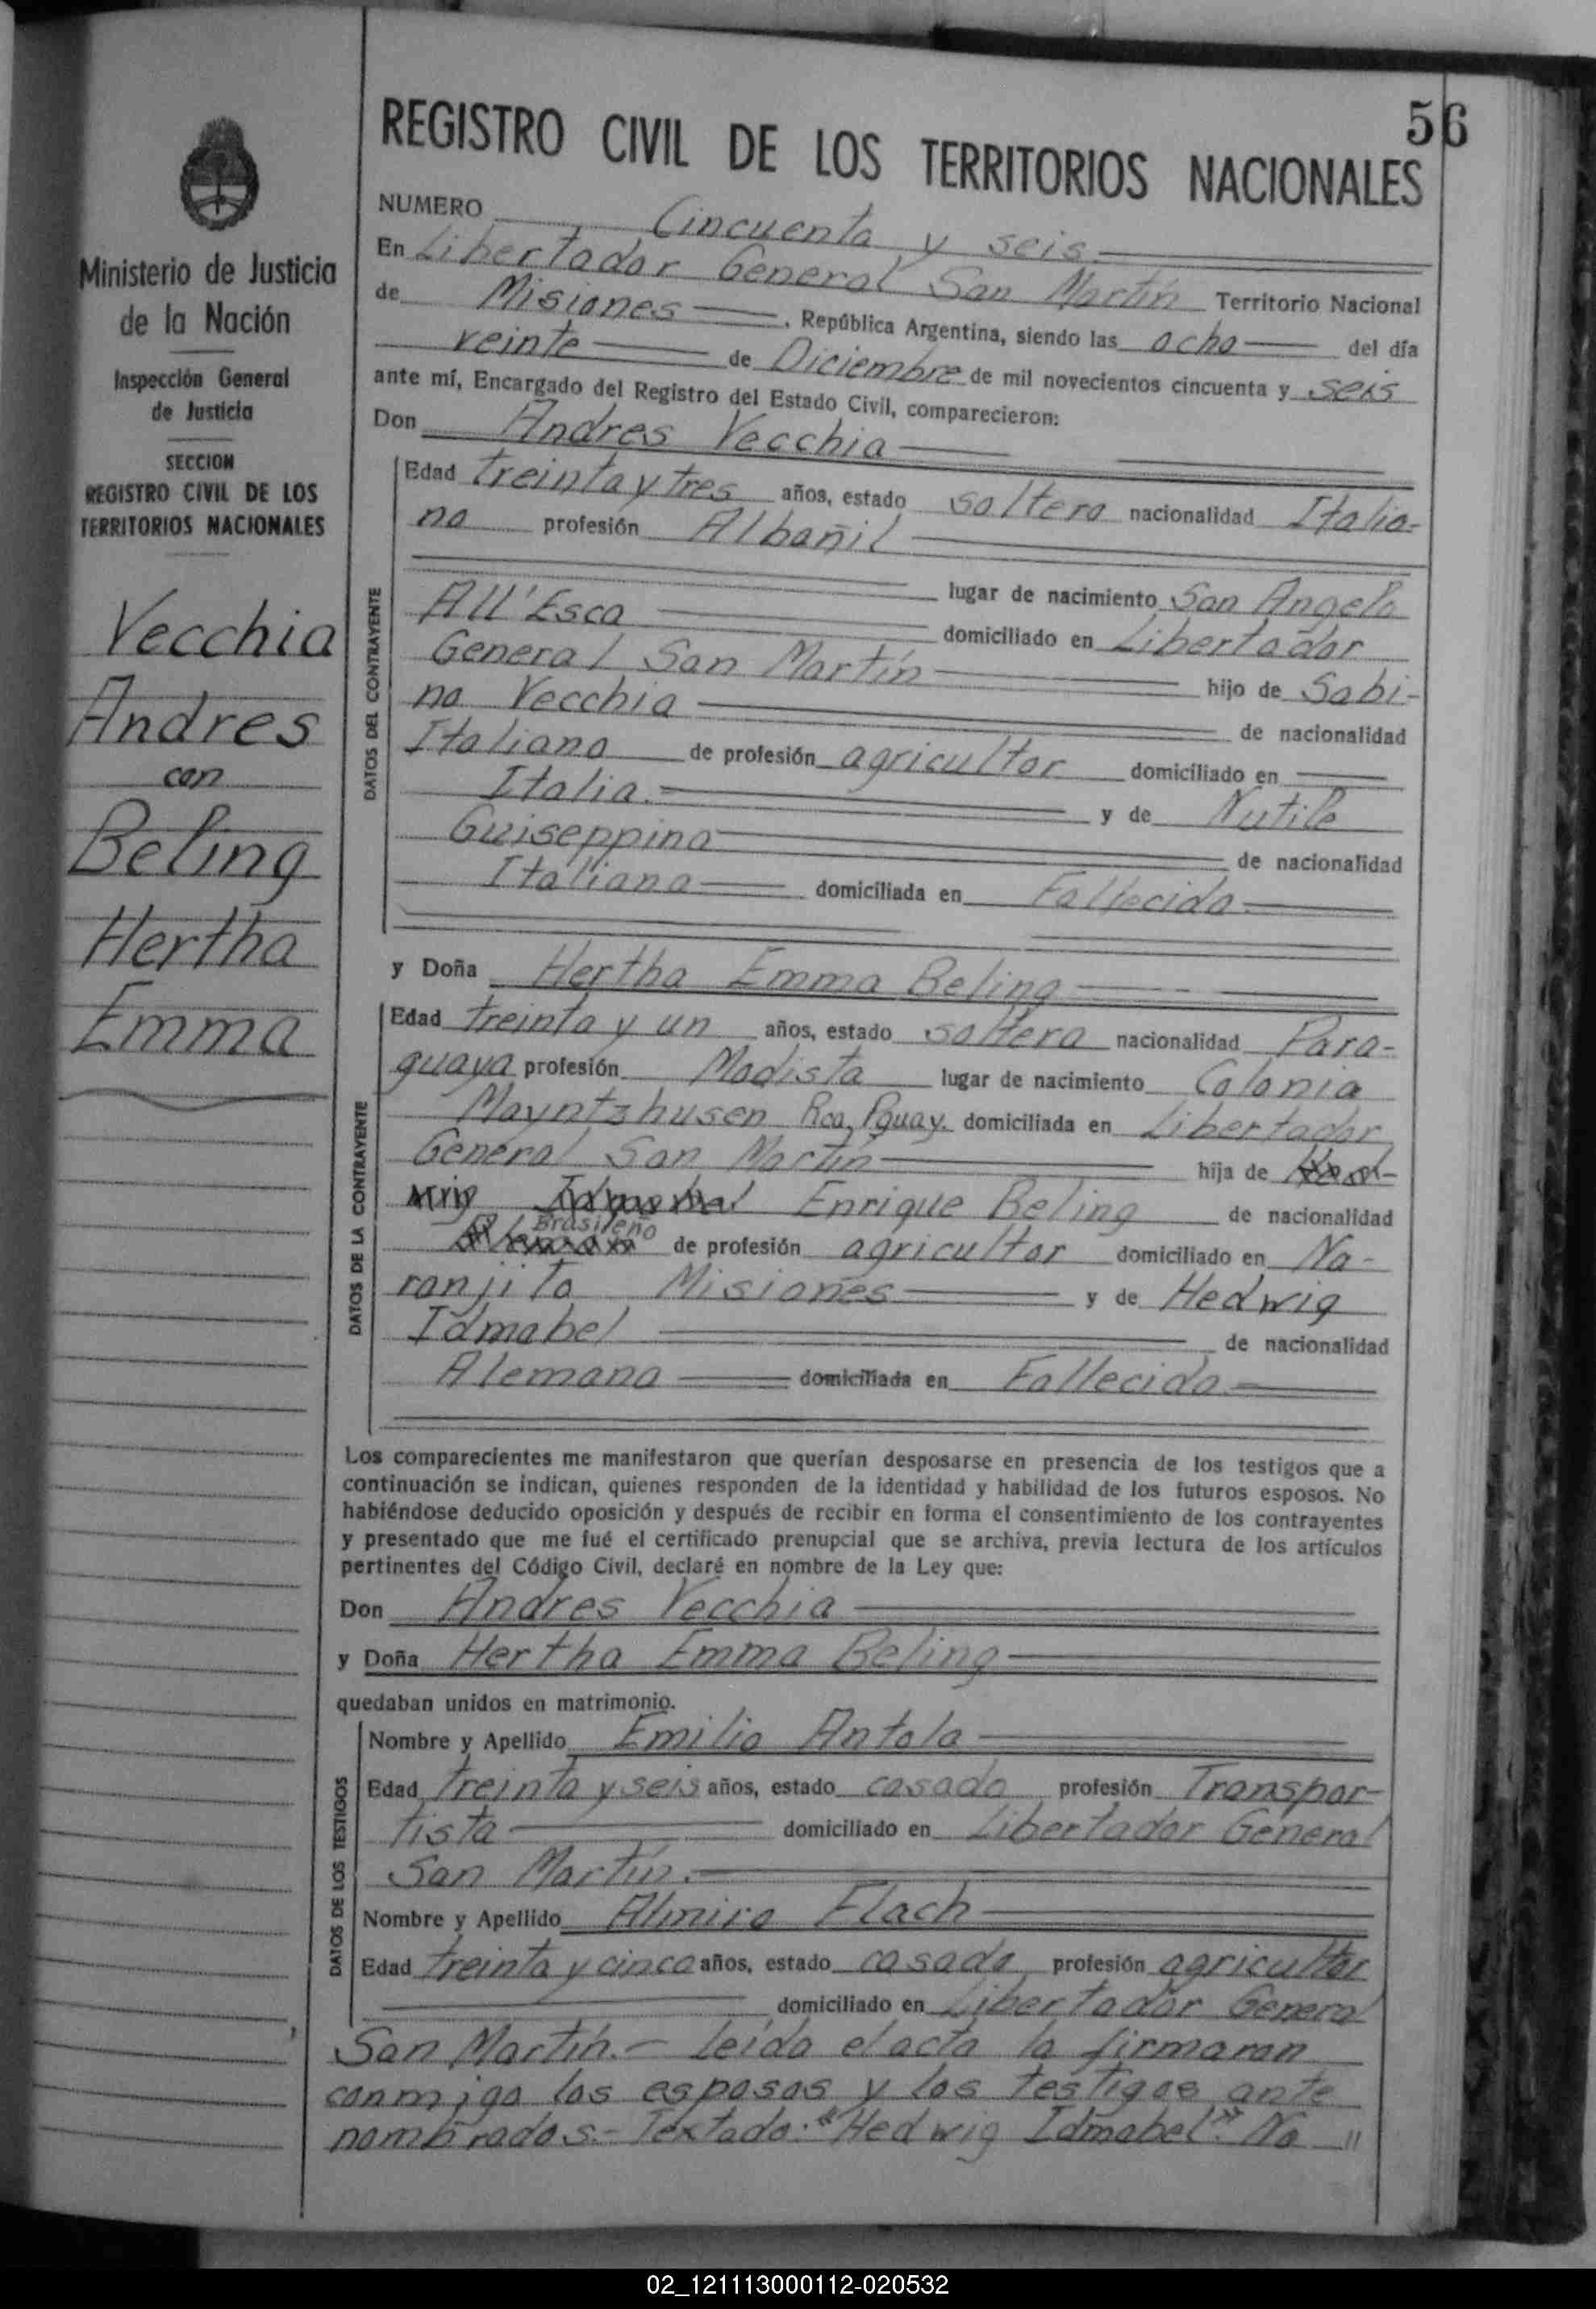 56
REGISTRO CIVIL DE LOS TERRITORIOS NACIONALES
Ministerio de Justicia
de la Nación
Inspección General
de Justicia
SECCION
REGISTRO CIVIL DE LOS
TERRITORIOS NACIONALES
Vecchia
Andres
con
Beling
Hertha
Emma
NUMERO Cincuenta y seis
En Libertador General San Martín Territorio Nacional
de Misiones, República Argentina, siendo las ocho del día
veinte de Diciembre de mil novecientos cincuenta y seis
ante mí, Encargado del Registro del Estado Civil, comparecieron:
Don Andres Vecchia
DATOS DEL CONTRAYENTE
Edad treinta y tres años, estado soltero nacionalidad Italia-
no profesión Albañil
lugar de nacimiento San Angelo
All'Esca domiciliado en Libertador
General San Martín hijo de Sabi-
no Vecchia de nacionalidad
Italiano de profesión agricultor domiciliado en
Italia. y de Nutile
Guiseppina de nacionalidad
Italiana domiciliada en Fallecida
y Doña Hertha Emma Beling
DATOS DE LA CONTRAYENTE
Edad treinta y un años, estado soltera nacionalidad Para-
guaya profesión Modista lugar de nacimiento Colonia
Mayntzhusen Rca, Pguay. domiciliada en Libertador
General San Martín hija de Hed-
wig Idmabel Enrique Beling de nacionalidad
Brasileño
Alemana de profesión agricultor domiciliado en Na-
ranjito Misiones y de Hedwig
Idmabel de nacionalidad
Alemana domiciliada en Fallecida
Los comparecientes me manifestaron que querían desposarse en presencia de los testigos que a
continuación se indican, quienes responden de la identidad y habilidad de los futuros esposos. No
habiéndose deducido oposición y después de recibir en forma el consentimiento de los contrayentes
y presentado que me fué el certificado prenupcial que se archiva, previa lectura de los artículos
pertinentes del Código Civil, declaré en nombre de la Ley que:
Don Andres Vecchia
y Doña Hertha Emma Beling
quedaban unidos en matrimonio.
DATOS DE LOS TESTIGOS
Nombre y Apellido Emilio Antola
Edad treinta y seis años, estado casado profesión Transpor-
tista domiciliado en Libertador General
San Martín.
Nombre y Apellido Almiro Flach
Edad treinta y cinco años, estado casado profesión agricultor
domiciliado en Libertador General
San Martín.- leída el acta la firmaron
conmigo los esposos y los testigos ante
nombrados.- Textado: "Hedwig Idmabel": No "
02_121113000112-020532